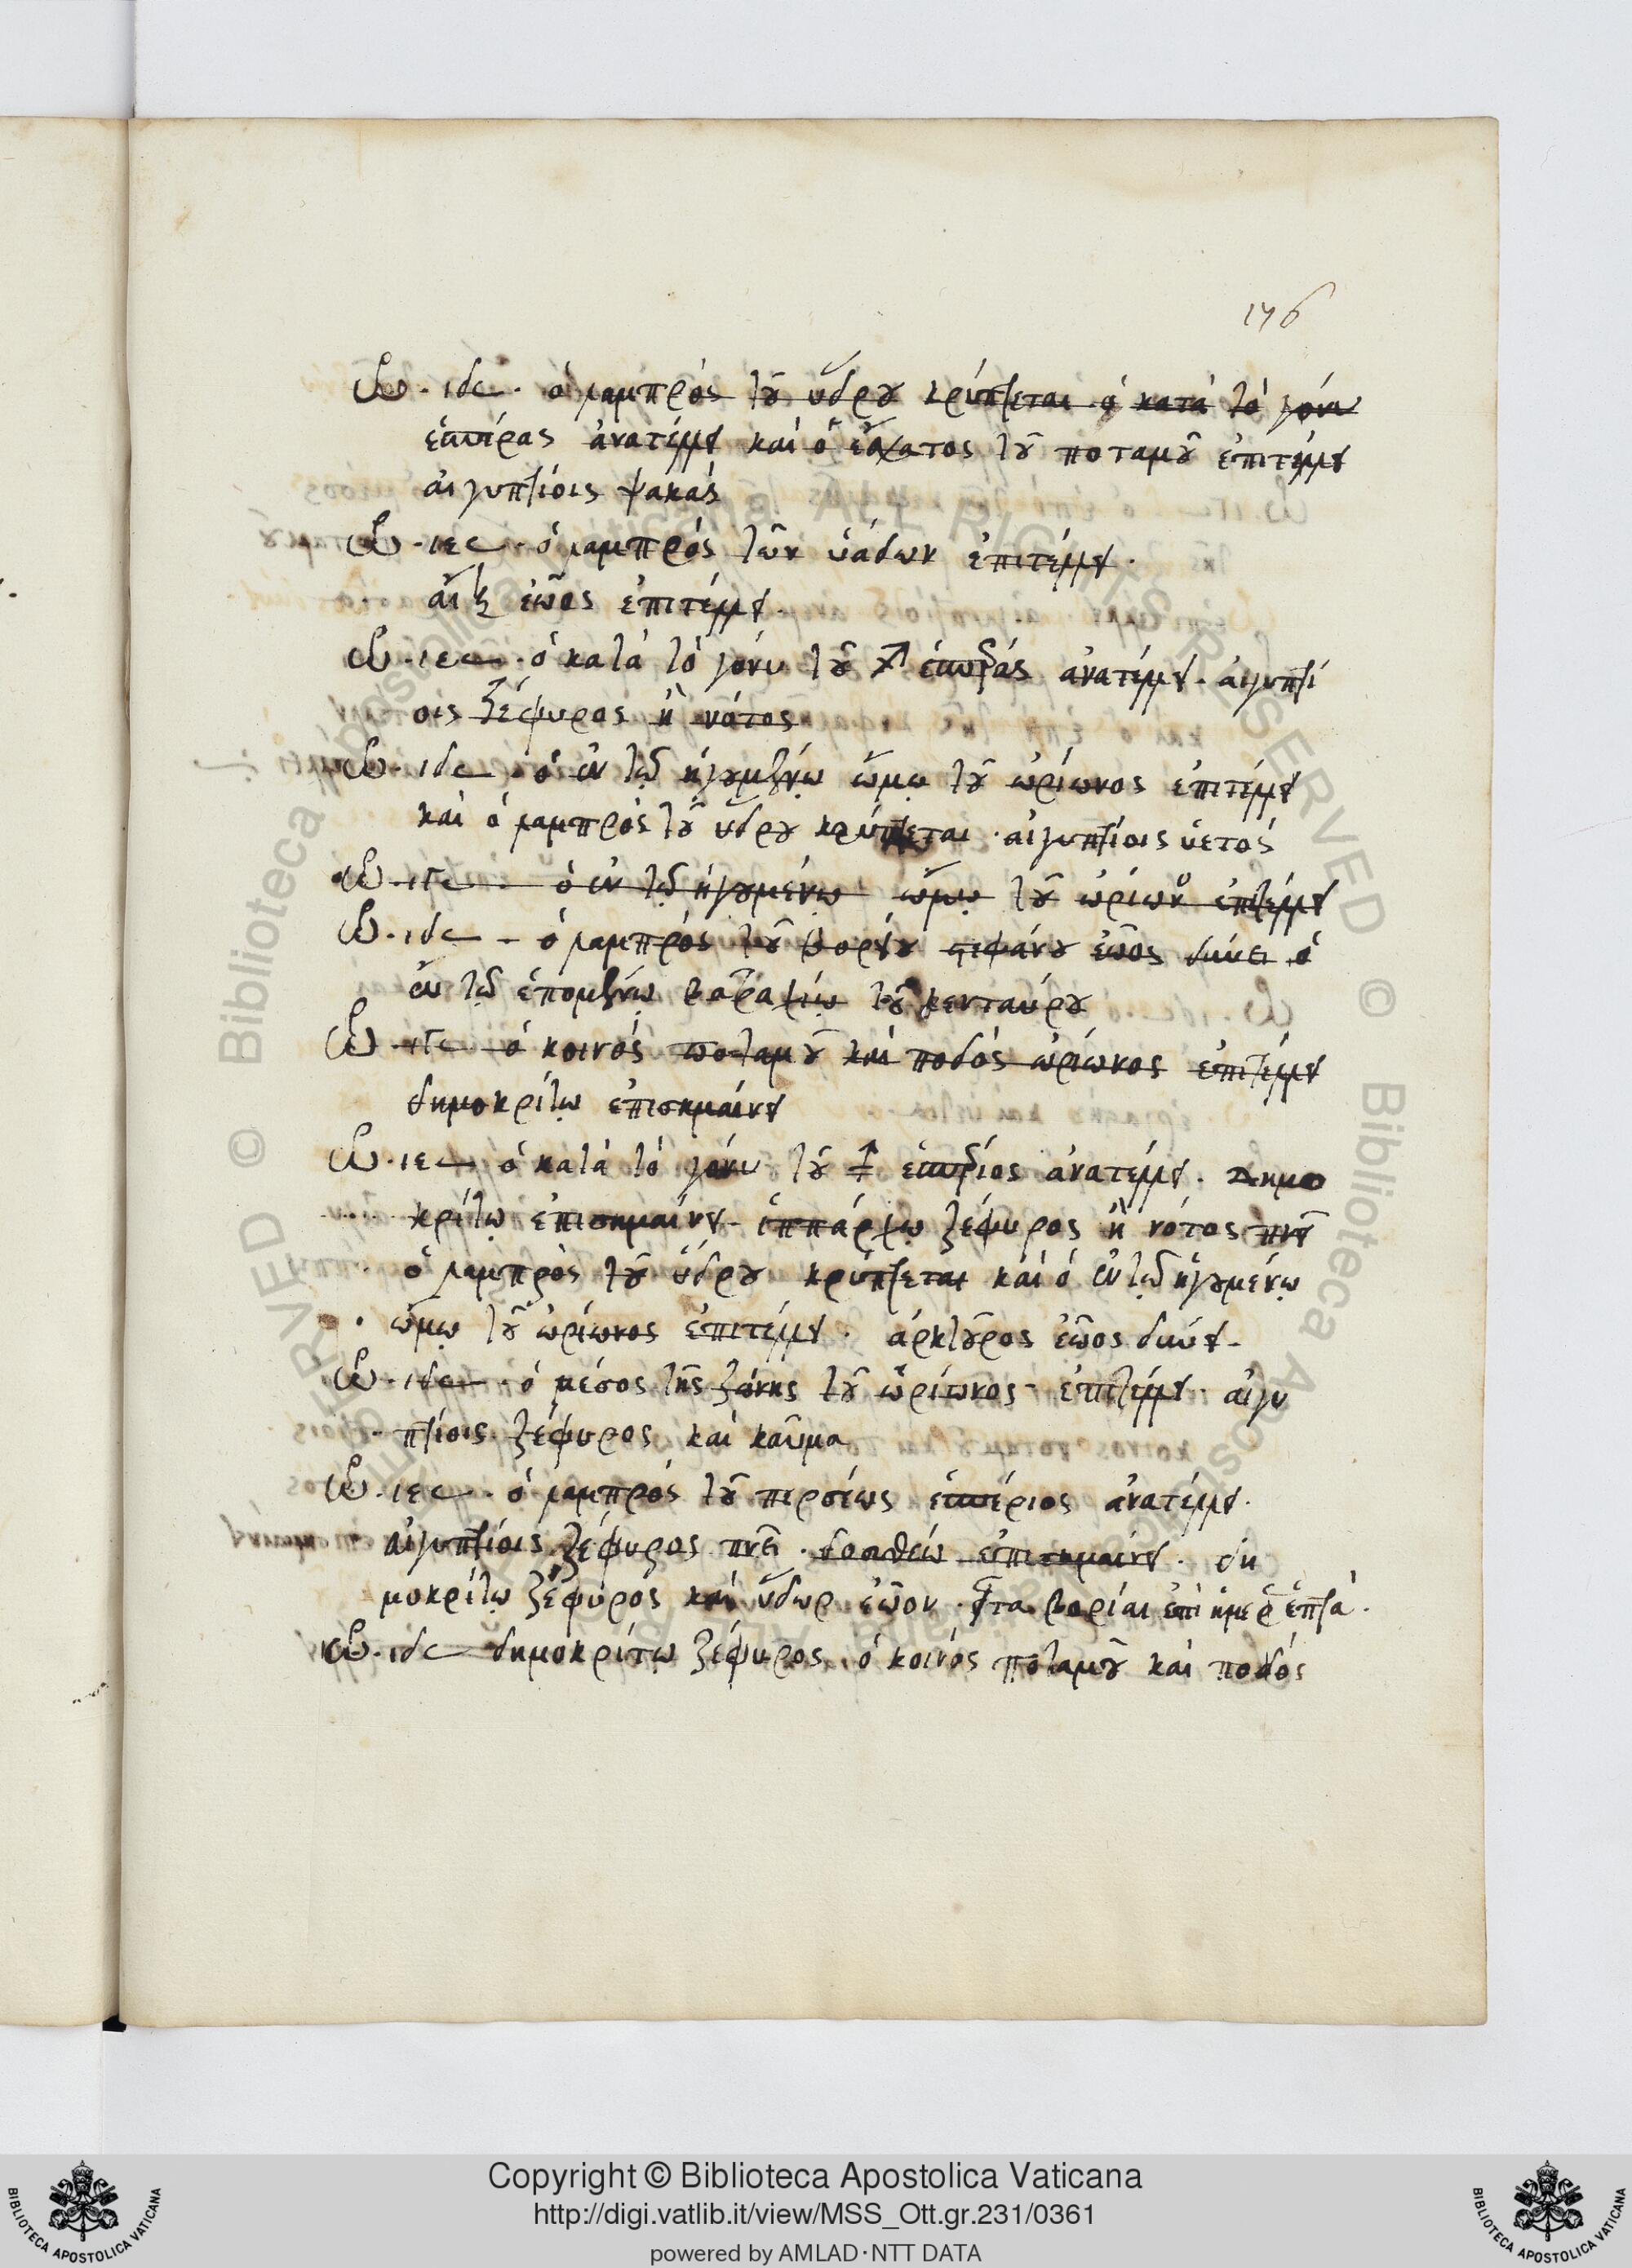 176
ὡρ. ιδ 𐅵. ὁ λαμπρὸς τοῦ ὕδρου κρύπτεται ὁ κατὰ τὸ γόνυ
ἑσπέρας ἀνατέλλει καὶ ὁ ἔσχατος τοῦ ποταμοῦ ἐπιτέλλει
αἰγυπτίοις ψακάς
ὡρ. ιε 𐅵. ὁ λαμπρὸς τῶν ὑάδων ἐπιτέλλει.
αἲξ ἑῷος ἐπιτέλλει.
ὡρ. ιε 𐅵. ὁ κατὰ τὸ γόνυ τοῦ ♐ ἑσπέρας ἀνατέλλει. αἰγυπτί
οις ζέφυρος ἢ νότος
ὡρ. ιδ 𐅵. ὁ ἐν τῷ ἡγουμένῳ ὤμῳ τοῦ ὠρίωνος ἐπιτέλλει
καὶ ὁ λαμπρὸς τοῦ ὕδρου κρύπτεται. αἰγυπτίοις ὑετός
ὡρ. ιγ 𐅵. ὁ ἐν τῷ ἡγουμένῳ ὤμῳ τοῦ ὠρίωνος ἐπιτέλλει
ὡρ. ιδ 𐅵 ὁ λαμπρὸς τοῦ βορείου στεφάνου ἑῷος δύνει ὁ
ἐν τῷ ἑπομένῳ βατραχίῳ τοῦ κενταύρου
ὡρ. ιγ 𐅵 ὁ κοινὸς ποταμοῦ καὶ ποδὸς ὠρίωνος ἐπιτέλλει
δημοκρίτῳ ἐπισημαίνει
ὡρ. ιε 𐅵 ὁ κατὰ τὸ γόνυ τοῦ ♐ ἑσπέριος ἀνατέλλει. Δημο
κρίτῳ ἐπισημαίνει. ἱππάρχῳ ζέφυρος ἢ νότος πνεῖ
ὁ λαμπρὸς τοῦ ὕδρου κρύπτεται καὶ ὁ ἐν τῷ ἡγουμένῳ
ὤμῳ τοῦ ὠρίωνος ἐπιτέλλει. ἀρκτοῦρος ἑῷος δύνει.
ὡρ. ιδ 𐅵. ὁ μέσος τῆς ζώνης τοῦ ὠρίωνος ἐπιτέλλει. αἰγυ
πτίοις ζέφυρος καὶ καῦμα
ὡρ. ιε 𐅵. ὁ λαμπρὸς τοῦ περσέως ἑσπέριος ἀνατέλλει.
αἰγυπτίοις ζέφυρος πνεῖ. δοσιθέῳ ἐπισημαίνει. δη
μοκρίτῳ ζέφυρος καὶ ὕδωρ ἑῷον. εἶτα βορέαι ἐπὶ ἡμέρας ἑπτά.
ὡρ. ιδ 𐅵 δημοκρίτῳ ζέφυρος. ὁ κοινὸς ποταμοῦ καὶ ποδός
Copyright © Biblioteca Apostolica Vaticana
http://digi.vatlib.it/view/MSS_Ott.gr.231/0361
powered by AMLAD·NTT DATA